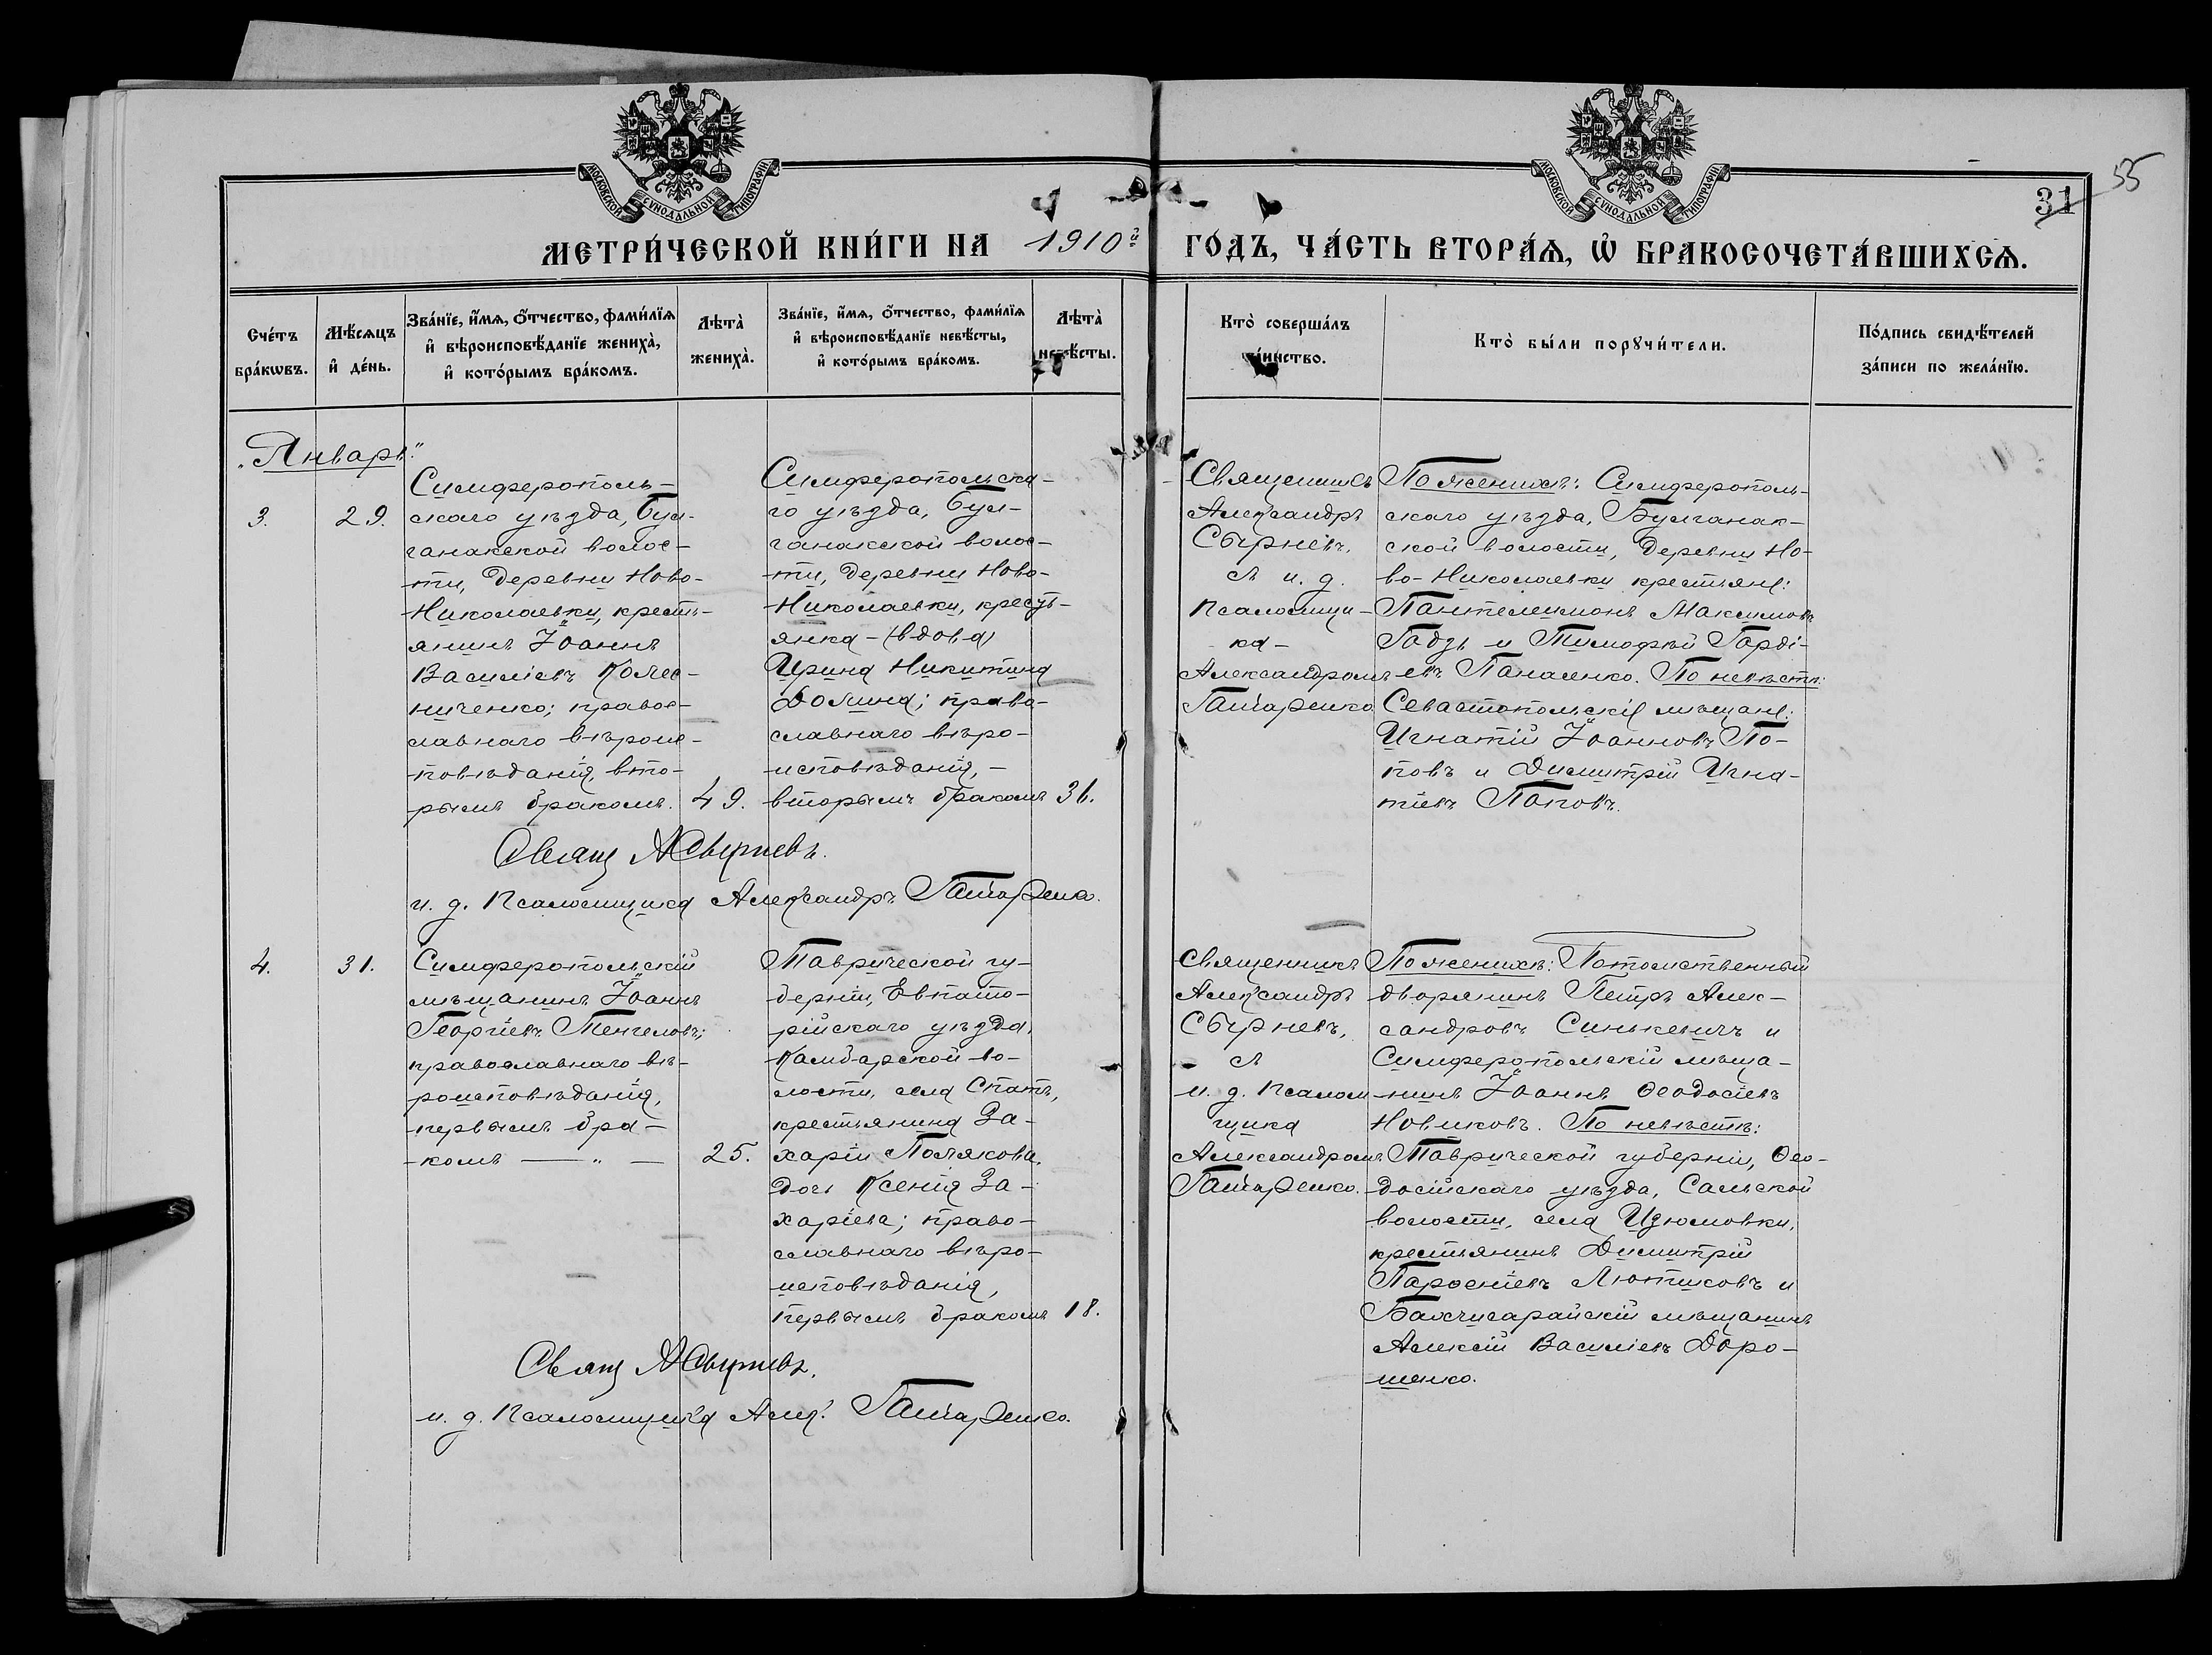 МОСКОВСКОЙ СУНОДАЛЬНОЙ ТИПОГРАФІИ
МОСКОВСКОЙ СУНОДАЛЬНОЙ ТИПОГРАФІИ
55
31
МЕТРИ́ЧЕСКОЙ КНИ́ГИ НА 1910й ГО́ДЪ, ЧА́СТЬ ВТОРА́Ѧ, Ѽ БРАКОСОЧЕТА́ВШИХСѦ.
Сче́тъ
бра́кѡвъ.
Мѣ́сяцъ
и҆ де́нь.
Зва́нїе, и҆́мя, ѻ҆́тчество, фами́лїя
и҆ вѣроисповѣ́данїе жениха̀,
и҆ кото́рымъ бра́комъ.
Лѣта̀
жениха̀.
Зва́нїе, и҆́мя, ѻ҆́тчество, фами́лїя
и҆ вѣроисповѣ́данїе невѣ́сты,
и҆ кото́рымъ бра́комъ.
Лѣта̀
невѣ́сты.
Кто̀ соверша́лъ
та́инство.
Кто̀ бы́ли порꙋчи́тели.
По́дпись свидѣ́телей
за́писи по жела́нїю.
„Январь“
3.
29.
Симферополь-
скаго уѣзда, Бул-
ганакской волос-
ти, деревни Ново-
Николаевки, кресть-
янинъ Іоаннъ
Василіевъ Колес-
ниченко; правос-
лавнаго вѣроис-
повѣданія, вто-
рымъ бракомъ.
49.
Симферопольска-
го уѣзда, Бул-
ганакской волос-
ти, деревни Ново-
Николаевки, крестъ-
янка - (вдова)
Ирина Никитина
Долина; право-
славнаго вѣро-
исповѣданія, -
вторымъ бракомъ
36.
Священникъ
Александръ
Сырневъ,
съ и. д.
псаломщи-
ка -
Александромъ
Гатаренко
По женихѣ: Симферополь-
скаго уѣзда, Булганак-
ской волости, деревни Но-
во-Николаевки крестьяне:
Пантелеимонъ Максимовъ
Гадзь и Тимофей Горді-
евъ Панаенко. По невѣстѣ:
Севастопольскіе мѣщане:
Игнатій Іоанновъ По-
повъ и Димитрій Игна-
тіевъ Поповъ.
Свящ А Сырневъ.
и. д. Псаломщика Александръ Гатаренко.
4.
31.
Симферопольскій
мѣщанинъ Іоаннъ
Георгіевъ Тенгеловъ;
православнаго вѣ-
роисповѣданія,
первымъ бра-
комъ — „ —
25.
Таврической гу-
берніи, Евпато-
рійскаго уѣзда,
Камбарской во-
лости, села Спатъ,
крестьянина За-
харіи Полякова,
дочь Ксенія За-
харіева; право-
славнаго вѣро-
исповѣданія,
первымъ бракомъ
18.
Священникъ
Александръ
Сырневъ,
съ
и. д. псалом
щика
Александромъ
Гатаренко.
По женихѣ: Потомственный
дворянинъ Петръ Алек-
сандровъ Синькевичъ и
Симферопольскій мѣща-
нинъ Іоаннъ Ѳеодосіевъ
Новиковъ. По невѣстѣ:
Таврической губерніи, Ѳео-
досійскаго уѣзда, Сальской
волости, села Изюмовки,
крестьянинъ Димитрій
Парѳеніевъ Лютиковъ и
Бахчисарайскій мѣщанинъ
Алексій Василіевъ Доро-
шенко.
Свящ А Сырневъ.
и. д. Псаломщика Алекс. Гатаренко.